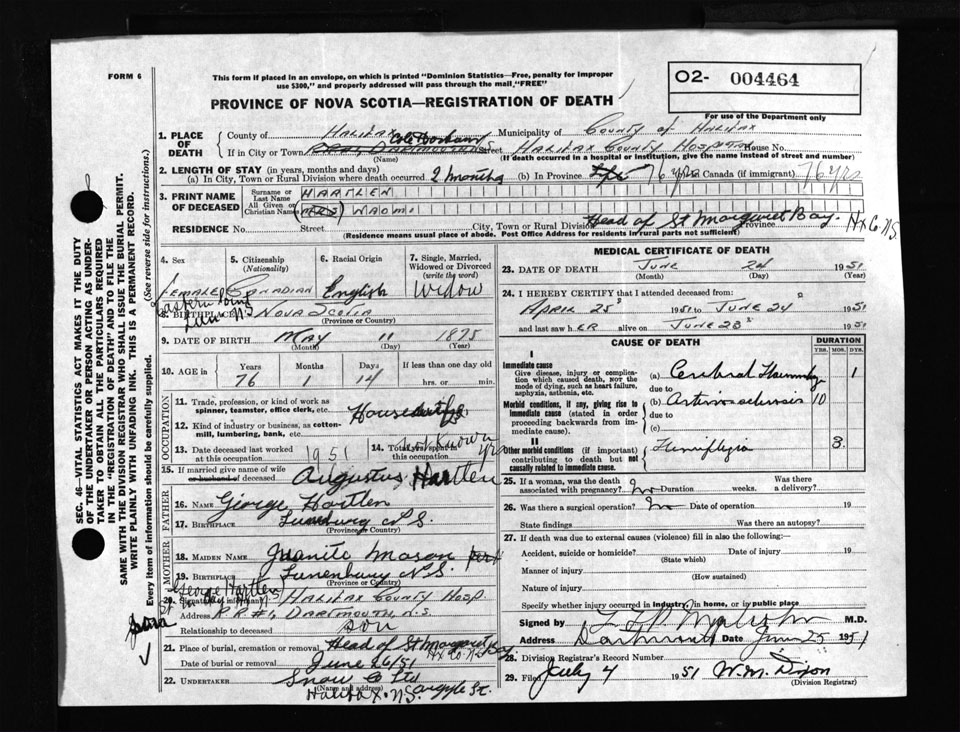 FORM 6
This form if placed in an envelope, on which is printed "Dominion Statistics—Free, penalty for improper
use $300," and properly addressed will pass through the mail, "FREE"
O2- 004464
For use of the Department only
PROVINCE OF NOVA SCOTIA—REGISTRATION OF DEATH
SEC. 46—VITAL STATISTICS ACT MAKES IT THE DUTY
OF THE UNDERTAKER OR PERSON ACTING AS UNDER-
TAKER TO OBTAIN ALL THE PARTICULARS REQUIRED
IN THE "REGISTRATION OF DEATH" AND TO FILE THE
SAME WITH THE DIVISION REGISTRAR WHO SHALL ISSUE THE BURIAL PERMIT.
WRITE PLAINLY WITH UNFADING INK. THIS IS A PERMANENT RECORD.
Every item of information should be carefully supplied. (See reverse side for instructions.)
1. PLACE OF DEATH
County of HALIFAX Municipality of COUNTY OF HALIFAX
If in City or Town Cole Harbour Street HALIFAX COUNTY HOSPITAL House No.
(Name) (If death occurred in a hospital or institution, give the name instead of street and number)
2. LENGTH OF STAY (in years, months and days)
(a) In City, Town or Rural Division where death occurred 2 months (b) In Province Life 76 yrs In Canada (if immigrant) 76 yrs
3. PRINT NAME OF DECEASED
Surname or Last Name HARTLEN
All Given or Christian Names (MRS) NAOMI
RESIDENCE No. Street City, Town or Rural Division Head of St Margaret Bay Province Hx Co. N.S.
(Residence means usual place of abode. Post Office Address for residents in rural parts not sufficient)
4. Sex FEMALE
5. Citizenship (Nationality) CANADIAN
6. Racial Origin English
7. Single, Married, Widowed or Divorced (write the word) Widow
Eastern Point
Lun N.S.
8. BIRTHPLACE NOVA SCOTIA
(Province or Country)
9. DATE OF BIRTH MAY 11 1875
(Month) (Day) (Year)
10. AGE Years 76 Months 1 Days 14 If less than one day old hrs. or min.
OCCUPATION
11. Trade, profession, or kind of work as spinner, teamster, office clerk, etc.
Housewife
12. Kind of industry or business, as cotton-mill, lumbering, bank, etc.
13. Date deceased last worked at this occupation 1951
14. Total yrs. spent in this occupation Not Known yrs
15. If married give name of wife or husband of deceased Augustus Hartlen
FATHER
16. NAME George Hartlen
17. BIRTHPLACE Lunenburg N.S.
(Province or Country)
MOTHER
18. MAIDEN NAME Mason
19. BIRTHPLACE Lunenburg N.S.
(Province or Country)
George Hartlen
20. Signature of informant HALIFAX COUNTY HOSP.
Address R R #1, DARTMOUTH N.S.
Relationship to deceased son
21. Place of burial, cremation or removal Head of St Margarets Bay
Hx Co. N.S.
Date of burial or removal June 26/51
22. UNDERTAKER Snow & Co Ltd
(Name and address)
Halifax. N.S. Argyle St.
MEDICAL CERTIFICATE OF DEATH
23. DATE OF DEATH JUNE 24 1951
(Month) (Day)
24. I HEREBY CERTIFY that I attended deceased from:
APRIL 25 1951 to JUNE 24 1951
and last saw hER alive on JUNE 23 1951
CAUSE OF DEATH
DURATION
YRS. MOS. DYS.
I
Immediate cause
Give disease, injury or complication which caused death, NOT the mode of dying, such as heart failure, asphyxia, asthenia, etc.
(a) Cerebral Haemorrhage 1
due to
Morbid conditions, if any, giving rise to immediate cause (stated in order proceeding backwards from immediate cause).
(b) Arteriosclerosis 10
due to
(c)
II
Other morbid conditions (if important) contributing to death but not causally related to immediate cause.
Hemiplegia 3
25. If a woman, was the death associated with pregnancy? No Duration weeks. Was there a delivery?
26. Was there a surgical operation? No Date of operation 19
State findings Was there an autopsy?
27. If death was due to external causes (violence) fill in also the following:
Accident, suicide or homicide? Date of injury 19
(State which)
Manner of injury
(How sustained)
Nature of injury
Specify whether injury occurred in industry, in home, or in public place
Signed by M.D.
Address Dartmouth Date June 25 1951
28. Division Registrar's Record Number
29. Filed July 4 1951 W.M. Dixon
(Division Registrar)